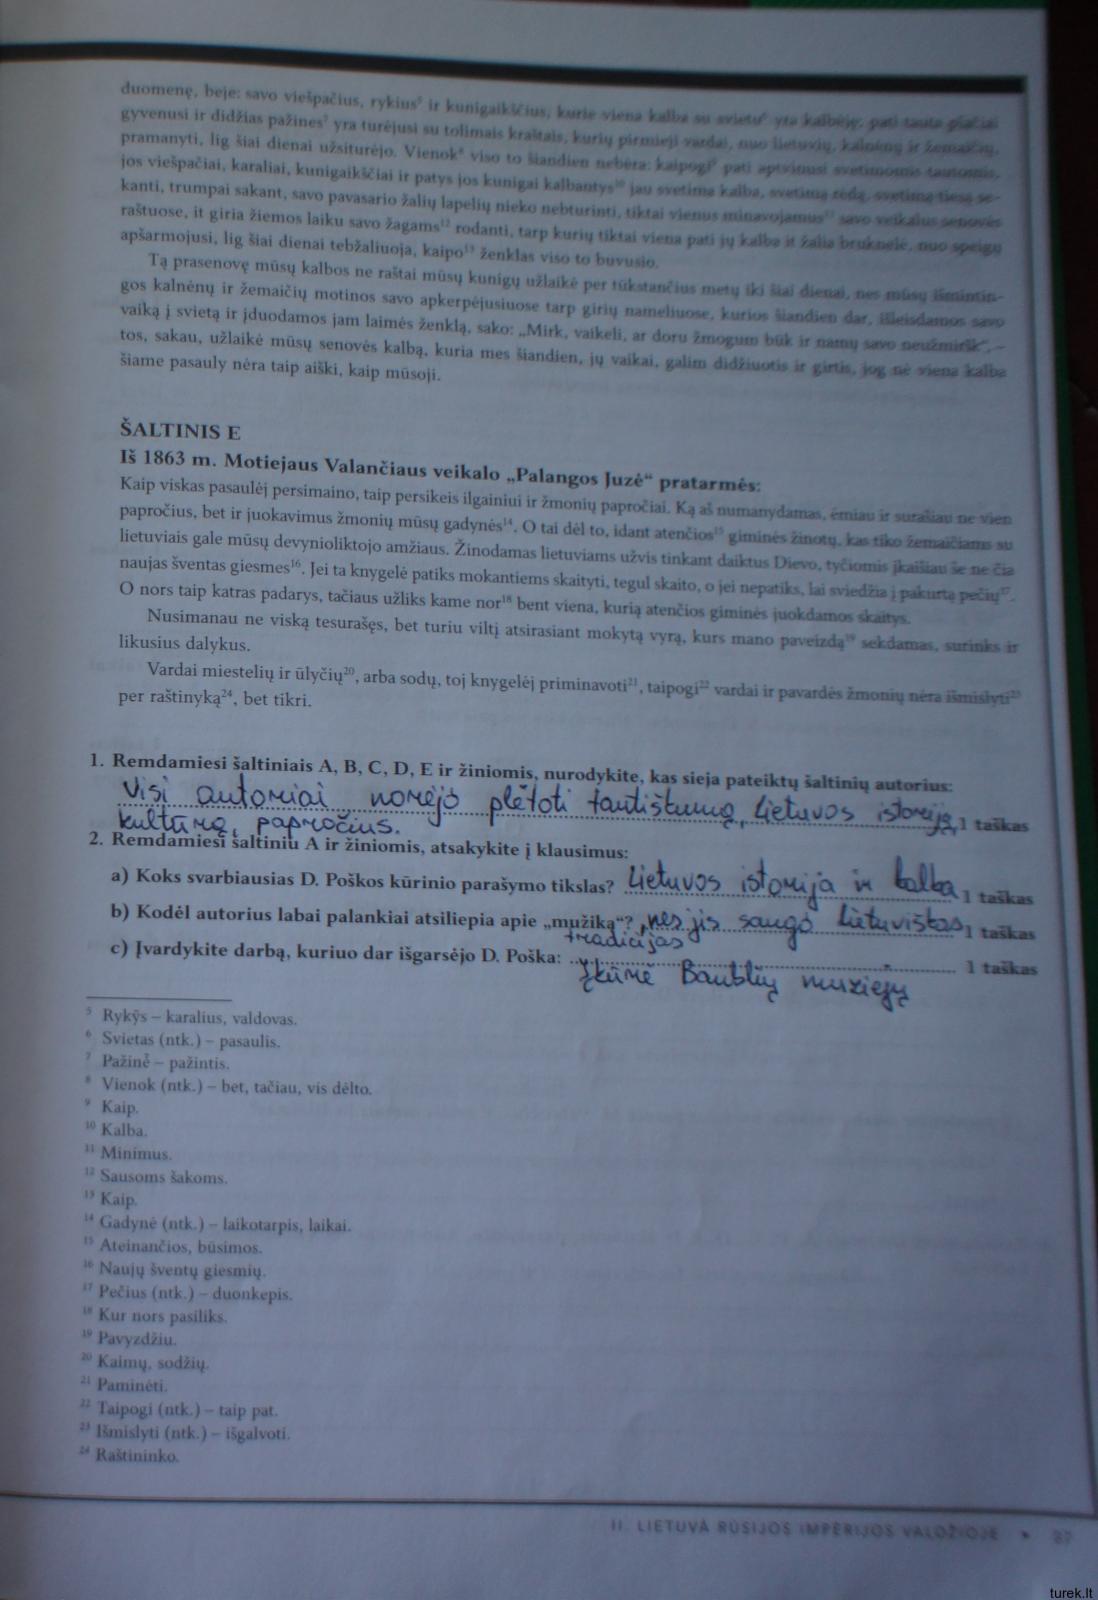 duomenę, beje: savo viešpačius, rykius⁵ ir kunigaikščius, kurie viena kalba su svietu⁶ yra kalbėję, pati tauta plačiai
gyvenusi ir didžias pažines⁷ yra turėjusi su tolimais kraštais, kurių pirmieji vardai, nuo lietuvių, kalnėnų ir žemaičių,
pramanyti, lig šiai dienai užsiturėjo. Vienok⁸ viso to šiandien nebėra: kaipogi⁹ pati aptvinusi svetimomis tautomis,
jos viešpačiai, karaliai, kunigaikščiai ir patys jos kunigai kalbantys¹⁰ jau svetima kalba, svetimą rėdą, svetimą tiesą se-
kanti, trumpai sakant, savo pavasario žalių lapelių nieko nebturinti, tiktai vienus minavojamus¹¹ savo veikalus senovės
raštuose, it giria žiemos laiku savo žagams¹² rodanti, tarp kurių tiktai viena pati jų kalba it žalia bruknelė, nuo speigų
apšarmojusi, lig šiai dienai tebžaliuoja, kaipo¹³ ženklas viso to buvusio.
Tą prasenovę mūsų kalbos ne raštai mūsų kunigų užlaikė per tūkstančius metų iki šiai dienai, nes mūsų išmintin-
gos kalnėnų ir žemaičių motinos savo apkerpėjusiuose tarp girių nameliuose, kurios šiandien dar, išleisdamos savo
vaiką į svietą ir įduodamos jam laimės ženklą, sako: „Mirk, vaikeli, ar doru žmogum būk ir namų savo neužmiršk“, –
tos, sakau, užlaikė mūsų senovės kalbą, kuria mes šiandien, jų vaikai, galim didžiuotis ir girtis, jog nė viena kalba
šiame pasauly nėra taip aiški, kaip mūsoji.
ŠALTINIS E
Iš 1863 m. Motiejaus Valančiaus veikalo „Palangos Juzė“ pratarmės:
Kaip viskas pasaulėj persimaino, taip persikeis ilgainiui ir žmonių papročiai. Ką aš numanydamas, ėmiau ir surašiau ne vien
papročius, bet ir juokavimus žmonių mūsų gadynės¹⁴. O tai dėl to, idant atenčios¹⁵ giminės žinotų, kas tiko žemaičiams su
lietuviais gale mūsų devynioliktojo amžiaus. Žinodamas lietuviams užvis tinkant daiktus Dievo, tyčiomis įkaišiau še ne čia
naujas šventas giesmes¹⁶. Jei ta knygelė patiks mokantiems skaityti, tegul skaito, o jei nepatiks, lai sviedžia į pakurtą pečių¹⁷.
O nors taip katras padarys, tačiaus užliks kame nor¹⁸ bent viena, kurią atenčios giminės juokdamos skaitys.
Nusimanau ne viską tesurašęs, bet turiu viltį atsirasiant mokytą vyrą, kurs mano paveizdą¹⁹ sekdamas, surinks ir
likusius dalykus.
Vardai miestelių ir ūlyčių²⁰, arba sodų, toj knygelėj priminavoti²¹, taipogi²² vardai ir pavardės žmonių nėra išmislyti²³
per raštinyką²⁴, bet tikri.
1. Remdamiesi šaltiniais A, B, C, D, E ir žiniomis, nurodykite, kas sieja pateiktų šaltinių autorius:
Visi autoriai norėjo plėtoti tautiškumą, Lietuvos istoriją, 1 taškas
kultūrą, papročius.
2. Remdamiesi šaltiniu A ir žiniomis, atsakykite į klausimus:
a) Koks svarbiausias D. Poškos kūrinio parašymo tikslas? Lietuvos istorija ir kalba 1 taškas
b) Kodėl autorius labai palankiai atsiliepia apie „mužiką“? nes jis saugo lietuviškas 1 taškas
tradicijas
c) Įvardykite darbą, kuriuo dar išgarsėjo D. Poška: 1 taškas
Įkūrė Baublių muziejų
⁵ Rykỹs – karalius, valdovas.
⁶ Svietas (ntk.) – pasaulis.
⁷ Pažinė̃ – pažintis.
⁸ Vienok (ntk.) – bet, tačiau, vis dėlto.
⁹ Kaip.
¹⁰ Kalba.
¹¹ Minimus.
¹² Sausoms šakoms.
¹³ Kaip.
¹⁴ Gadynė (ntk.) – laikotarpis, laikai.
¹⁵ Ateinančios, būsimos.
¹⁶ Naujų šventų giesmių.
¹⁷ Pečius (ntk.) – duonkepis.
¹⁸ Kur nors pasiliks.
¹⁹ Pavyzdžiu.
²⁰ Kaimų, sodžių.
²¹ Paminėti.
²² Taipogi (ntk.) – taip pat.
²³ Išmislyti (ntk.) – išgalvoti.
²⁴ Raštininko.
II. LIETUVA RUSIJOS IMPERIJOS VALDŽIOJE • 87
turek.lt